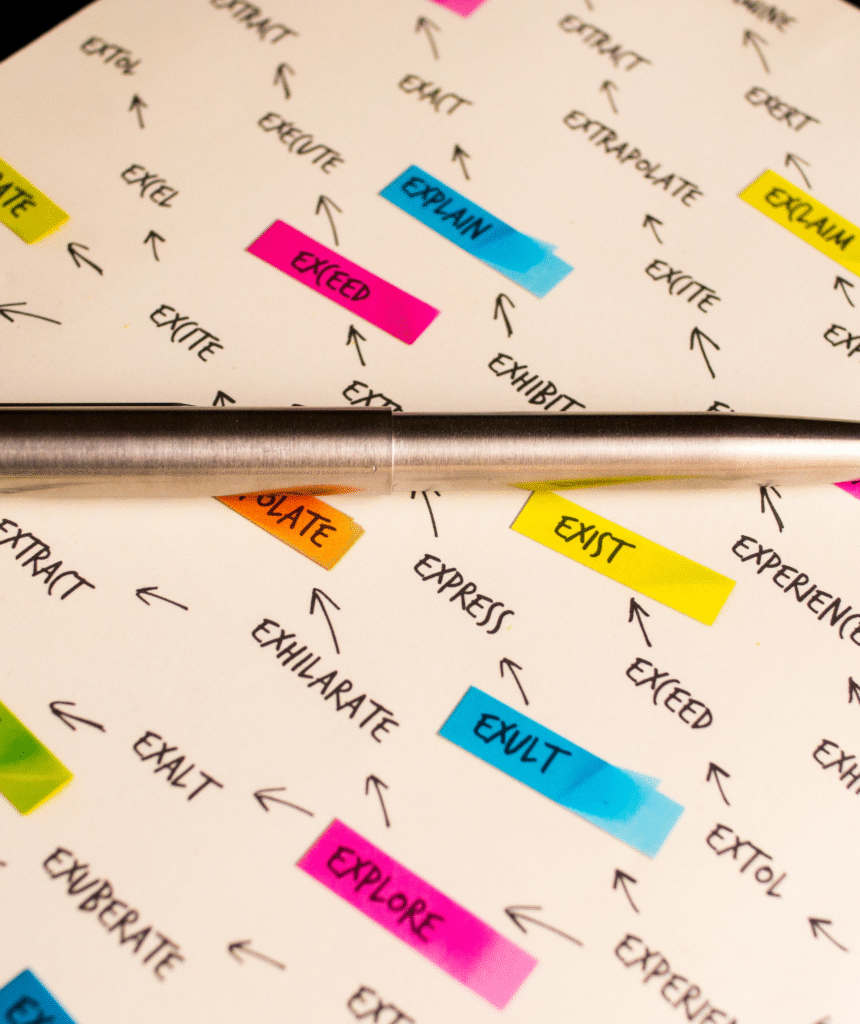 EXTRACT
EXTOL
EXTRACT
EXACT
EXERT
EXECUTE
EXTRAPOLATE
EXCEL
EXPLAIN
EXCLAIM
EXCEED
EXCITE
EXCITE
EXHIBIT
EXIST
EXTRACT
EXPRESS
EXPERIENCE
EXHILARATE
EXCEED
EXULT
EXALT
EXTOL
EXPLORE
EXUBERATE